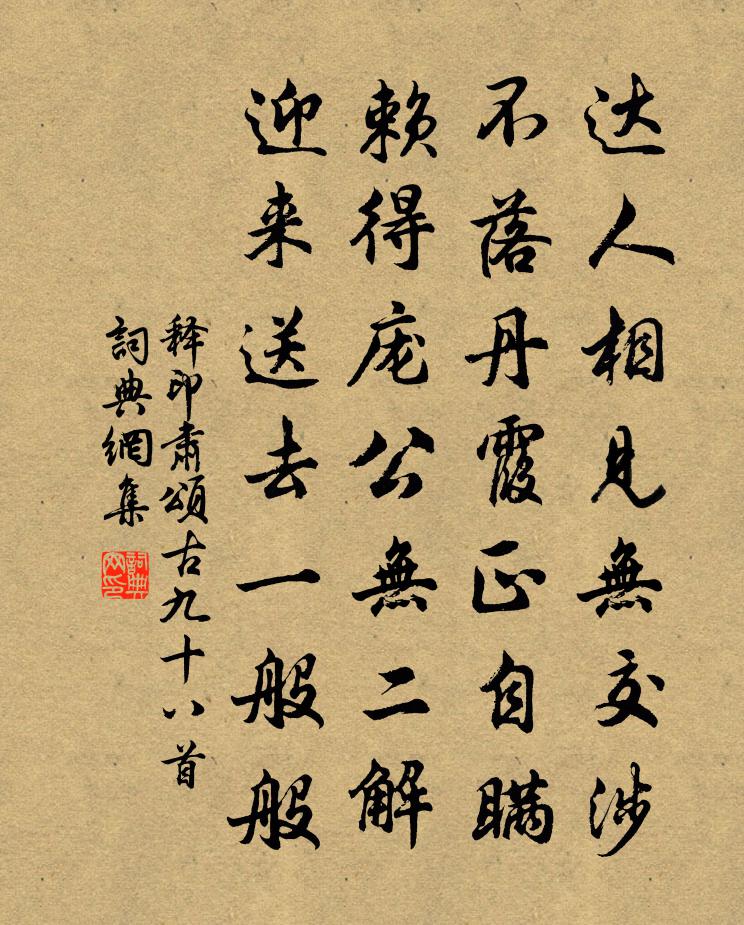 达人相见無交涉
不落丹霞正自瞒
赖得庞公無二解
迎来送去一般般
释印肃頌古九十八首
詞典網集
詞典網印